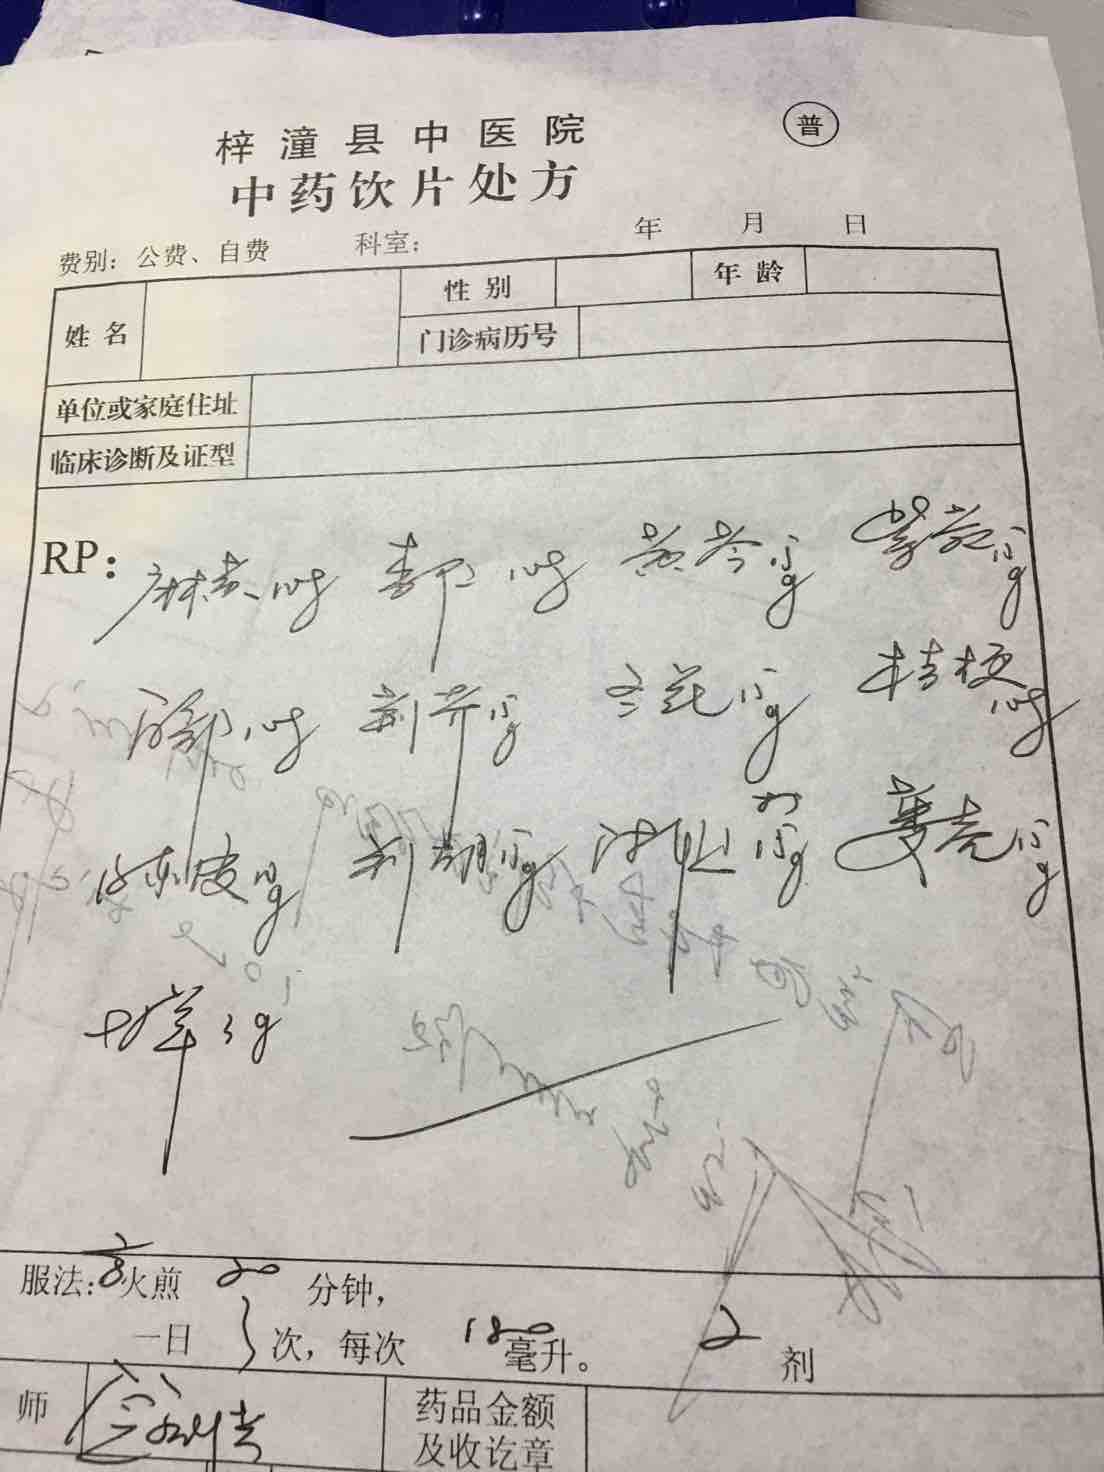 梓潼县中医院
普
中药饮片处方
费别：公费、自费 科室： 年 月 日
姓名 性别 年龄
门诊病历号
单位或家庭住址
临床诊断及证型
RP： 麻黄10g 杏仁10g 黄芩15g 紫菀15g
百部10g 荆芥15g 冬花15g 桔梗10g
陈皮 前胡15g 15g 蒌壳15g
甘草3g
服法： 火煎 20 分钟，
一日 3 次，每次 180 毫升。 2 剂
师 药品金额
及收讫章